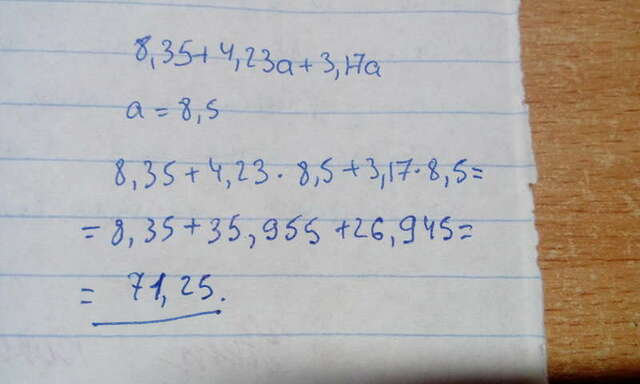 8,35+4,23a+3,17a
a=8,5
8,35+4,23·8,5+3,17·8,5=
=8,35+35,955+26,945=
= 71,25.